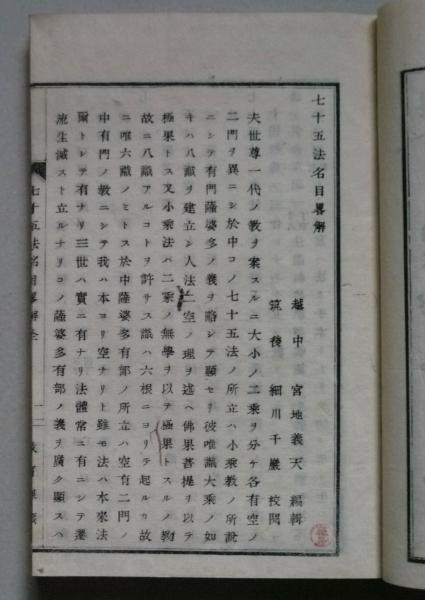 七十五法名目畧解
越中 宮地義天 編輯
筑後 細川千巖 校閲
夫世尊一代ノ教ヲ案スルニ大小ノ二乘ヲ分ケ各有空ノ
二門ヲ異ニシ於中コノ七十五法ノ所立ハ小乘教ノ所説
ニシテ有門薩婆多ノ義ヲ略シテ顯セリ彼唯識大乘ノ如
キハ八識ヲ建立シ人法二空ノ理ヲ述ヘ佛果菩提ヲ以テ
極果トス又小乘法ハ二乘ノ無學ヲ以テ極果トスルノ教
故ニ八識アルコトヲ許サス識ハ六根ニヨリテ起ルカ故
ニ唯六識ノミトス於中薩婆多有部ノ所立ハ空有二門ノ
中有門ノ教ニシテ我ハ本ヨリ空ナリト雖モ法ハ本來法
爾トシテ有ナリ三世ハ實ニ有ナリ法體常ニ有ニシテ遷
流生滅スト立ルナリコノ薩婆多有部ノ義ヲ廣ク顯スハ
七十五法名目畧解全 一